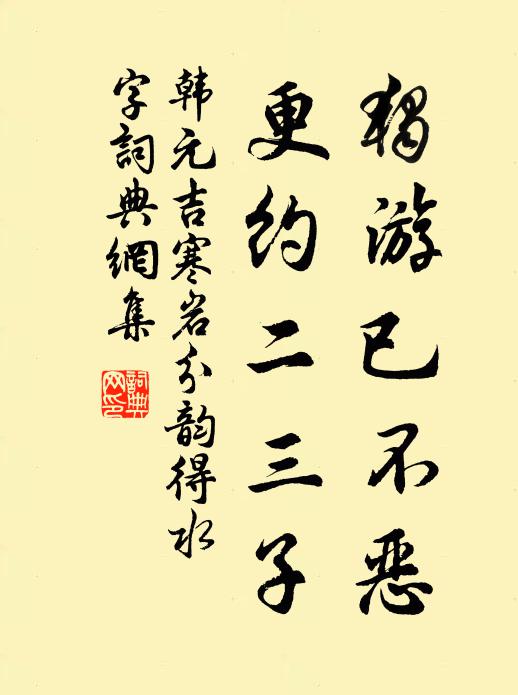 獨游已不惡
更約二三子
韩元吉寒岩分韵得水
字詞典網集
詞典网印